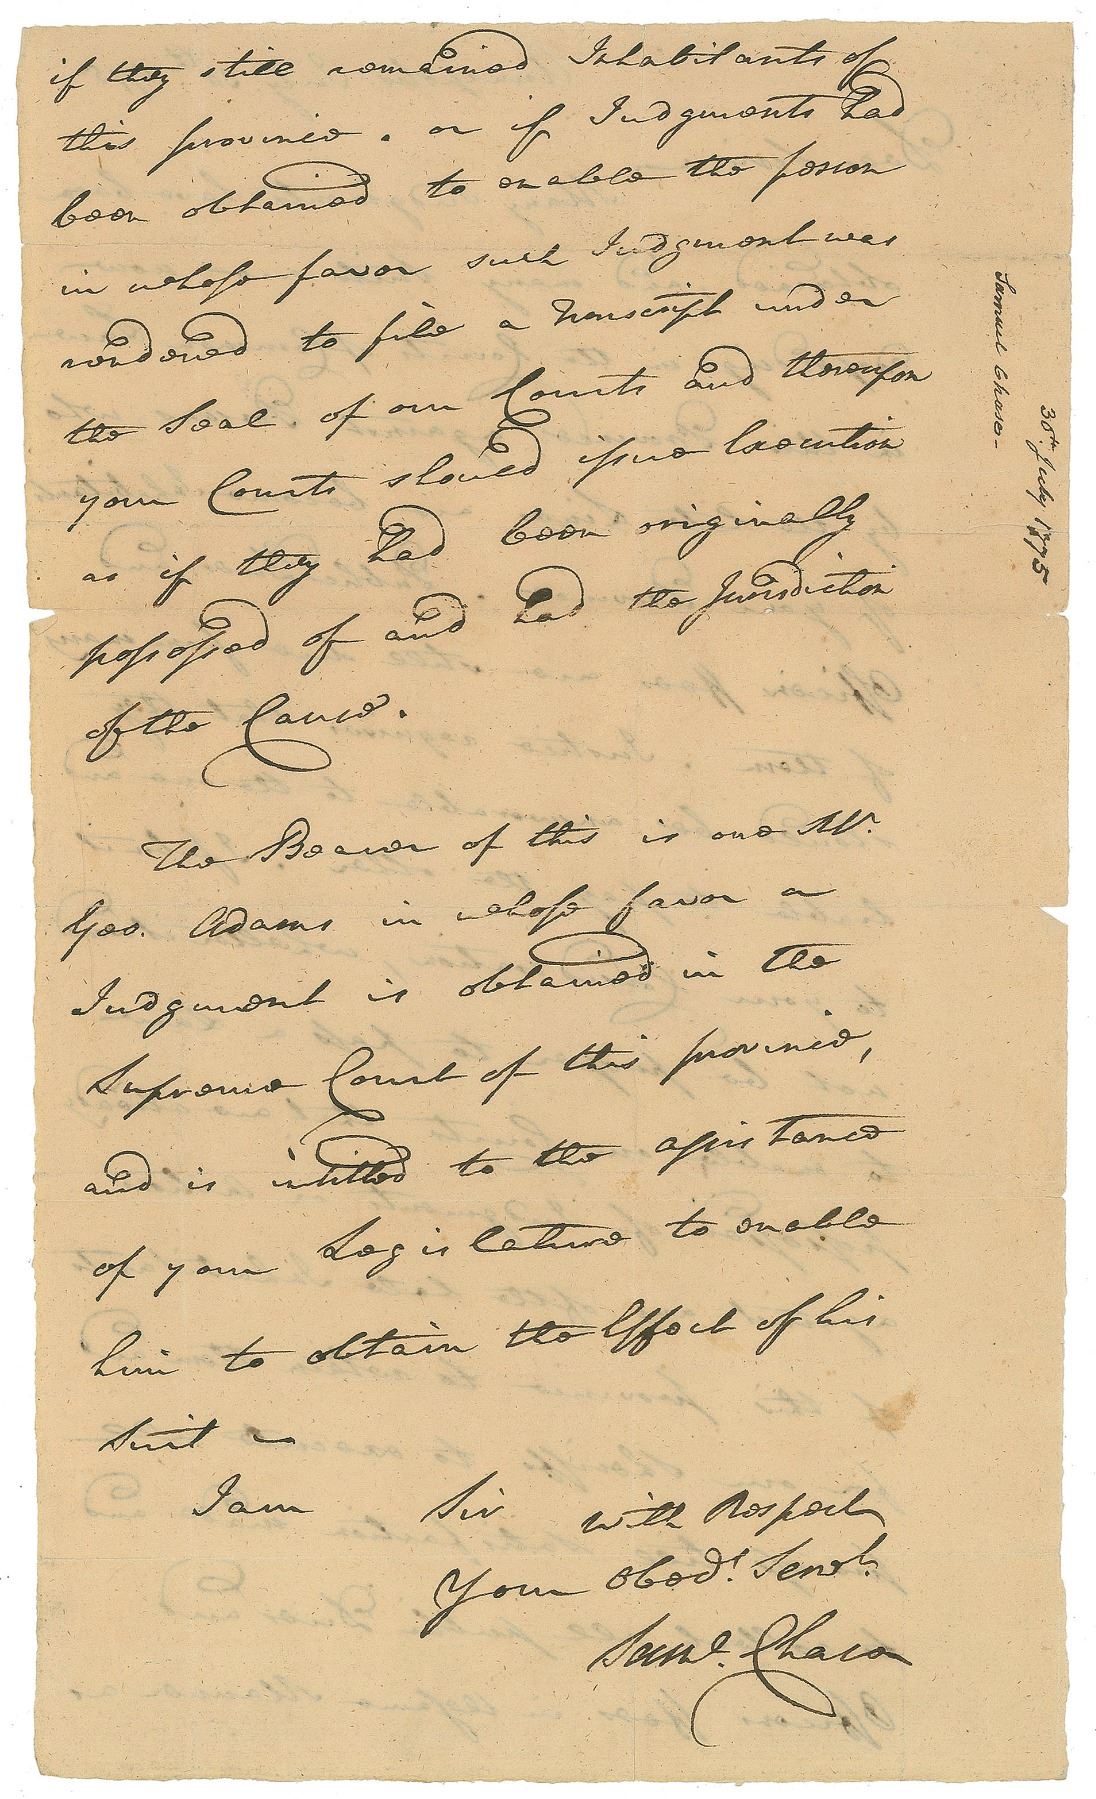 if they still remained Inhabitants of
this province. or if Judgments had
been obtained to enable the person
in whose favor such Judgment was
rendered to file a Transcript under
the Seal of our Courts and thereupon
your Courts should issue Execution
as if they had been originally
possessed of and had the Jurisdiction
of the Cause.
The Bearer of this is one Mr.
Geo. Adams in whose favor a
Judgment is obtained in the
Supreme Court of this province,
and is intitled to the assistance
of your Legislature to enable
him to obtain the Effect of his
Suit
I am Sir with Respect
Your Obedt. Servt.
Saml. Chase
Samuel Chase-
30th July 1775